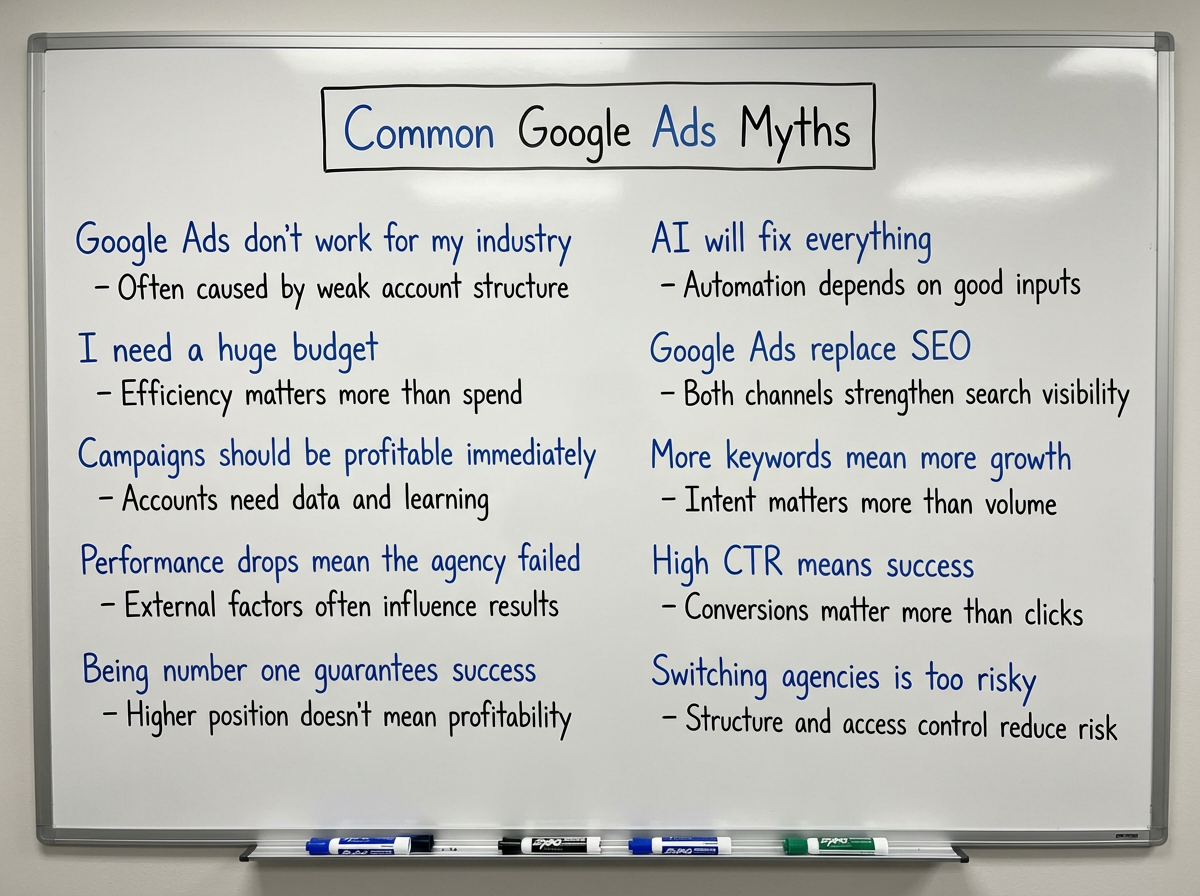 Common Google Ads Myths
Google Ads don't work for my industry
- Often caused by weak account structure
I need a huge budget
- Efficiency matters more than spend
Campaigns should be profitable immediately
- Accounts need data and learning
Performance drops mean the agency failed
- External factors often influence results
Being number one guarantees success
- Higher position doesn't mean profitability
AI will fix everything
- Automation depends on good inputs
Google Ads replace SEO
- Both channels strengthen search visibility
More keywords mean more growth
- Intent matters more than volume
High CTR means success
- Conversions matter more than clicks
Switching agencies is too risky
- Structure and access control reduce risk
EXPO
EXPO
EXPO